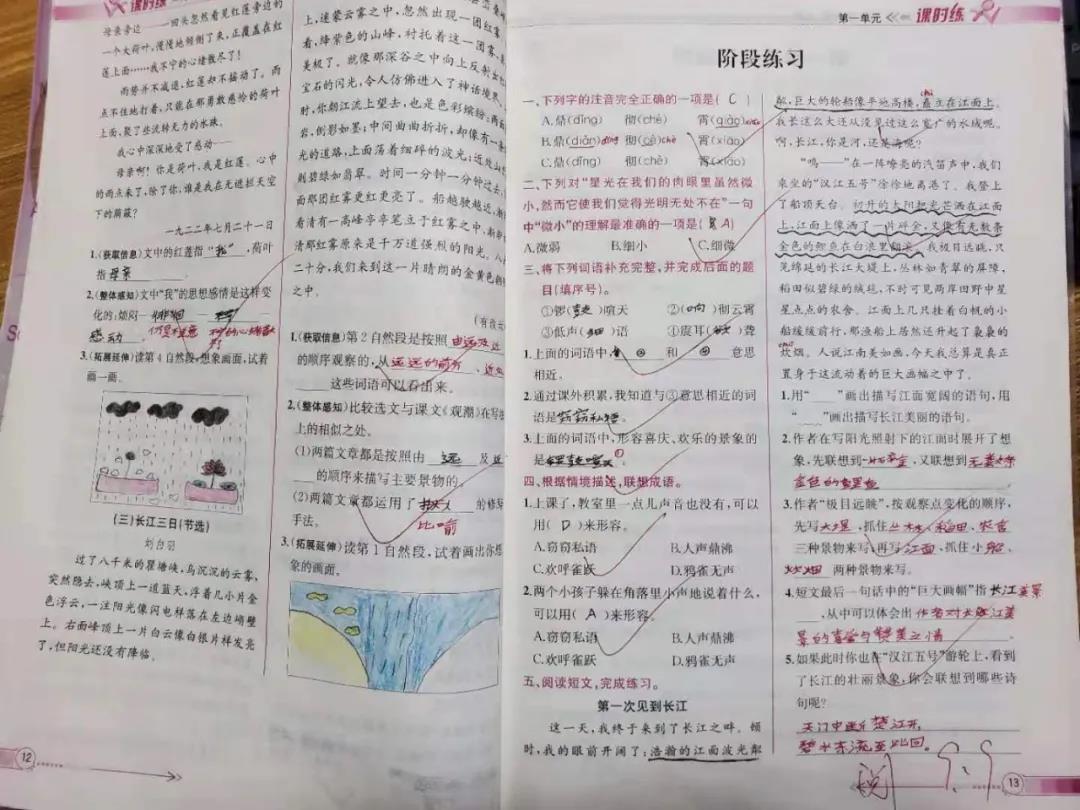 课时练
母亲旁边——一回头忽然看见红莲旁边的
一个大荷叶,慢慢地倾侧了来,正覆盖在红
莲上面……我不宁的心绪散尽了!
雨势并不减退,红莲却不摇动了。雨
点不住地打着,只能在那勇敢慈怜的荷叶
上面,聚了些流转无力的水珠。
我心中深深地受了感动——
母亲啊!你是荷叶,我是红莲。心中
的雨点来了,除了你,谁是我在无遮拦天空
下的荫蔽?
一九二二年七月二十一日
1.(获取信息)文中的红莲指“我”,荷叶
指母亲。
2.(整体感知)文中“我”的思想感情是这样变
化的:烦闷—徘徊—
感动
3.(拓展延伸)读第4自然段,想象画面,试着
画一画。
(三)长江三日(节选)
刘白羽
过了八千米的瞿塘峡,乌沉沉的云雾,
突然隐去,峡顶上一道蓝天,浮着几小片金
色浮云,一注阳光像闪电样落在左边峭壁
上。右面峰顶上一片白云像白银片样发亮
了,但阳光还没有降临。
12
上,迷蒙云雾之中,忽然出现一团红雾
看,绛紫色的山峰,衬托着这一团雾,
美极了。就像那深谷之中向上反射出
宝石的闪光,令人仿佛进入了神话境界。
时,你朝江流上望去,也是色彩缤纷:两面
岩,倒影如墨;中间曲曲折折,却像有一条
光的道路,上面荡着细碎的波光;近处山
则碧绿如翡翠。时间一分钟一分钟过去,
面那团红雾更红更亮了。船越驶越近,渐
看清有一高峰亭亭笔立于红雾之中,渐渐
清那红雾原来是千万道强烈的阳光。八
二十分,我们来到这一片晴朗的金黄色朝
之中。
1.(获取信息)第2自然段是按照由远及近
的顺序观察的,从远远的前方、近处
这些词语可以看出来。
2.(整体感知)比较选文与课文《观潮》在写
上的相似之处。
(1)两篇文章都是按照由远及近
的顺序来描写主要景物的。
(2)两篇文章都运用了的修
比喻
手法。
3.(拓展延伸)读第1自然段,试着画出你想
象的画面。
第一单元
课时练
阶段练习
一、下列字的注音完全正确的一项是( C )
A.鼎(dīng) 彻(chè) 宵(qiào) xiāo
B.鼎(diǎn) dǐng 彻(cè) chè 宵(xiāo)
C.鼎(dǐng) 彻(chè) 宵(xiāo)
二、下列对“星光在我们的肉眼里虽然微
小,然而它使我们觉得光明无处不在”一句
中“微小”的理解最准确的一项是( A )
A.微弱 B.细小 C.细微
三、将下列词语补充完整,并完成后面的题
目(填序号)。
①锣(鼓)喧天 ②(响)彻云霄
③低声(细)语 ④震耳(欲)聋
1.上面的词语中,②和④意思
相近。
2.通过课外积累,我知道与③意思相近的词
语是窃窃私语。
3.上面的词语中,形容喜庆、欢乐的景象的
是①。
四、根据情境描述,联想成语。
1.上课了,教室里一点儿声音也没有,可以
用( D )来形容。
A.窃窃私语 B.人声鼎沸
C.欢呼雀跃 D.鸦雀无声
2.两个小孩子躲在角落里小声地说着什么,
可以用( A )来形容。
A.窃窃私语 B.人声鼎沸
C.欢呼雀跃 D.鸦雀无声
五、阅读短文,完成练习。
第一次见到长江
这一天,我终于来到了长江之畔。顿
时,我的眼前开阔了:浩瀚的江面波光粼
粼,巨大的轮船像平地高楼,矗立在江面上。
我长这么大还从没见过这么宽广的水域呢。
啊,长江,你是河,还是海呢?
“呜——”在一阵嘹亮的汽笛声中,我们
乘坐的“汉江五号”徐徐地离港了。我登上
了船顶天台。初升的太阳把光芒洒在江面
上,江面上像洒了一片碎金,又像有无数条
金色的鲤鱼在白浪里翻滚。我极目远眺,只
见绵延的长江大堤上,丛林如青翠的屏障,
稻田似碧绿的绒毯,不时可见两岸田野中星
星点点的农舍。江面上几只挂着白帆的小
船缓缓前行,那渔船上居然还升起了袅袅的
炊烟。人说江南美如画,今天我总算是真正
置身于这流动着的巨大画幅之中了。
1.用“——”画出描写江面宽阔的语句,用
“﹏﹏”画出描写长江美丽的语句。
2.作者在写阳光照射下的江面时展开了想
象,先联想到一片碎金,又联想到无数条
金色的鲤鱼
3.作者“极目远眺”,按观察点变化的顺序,
先写大堤,抓住丛林、稻田、农舍
三种景物来写,再写江面,抓住小船、
炊烟两种景物来写。
4.短文最后一句话中的“巨大画幅”指长江美景
,从中可以体会出作者对长江美
景的喜爱与赞美之情。
5.如果此时你也在“汉江五号”游轮上,看到
了长江的壮丽景象,你会联想到哪些诗
句呢?
天门中断楚江开,
碧水东流至此回。
13